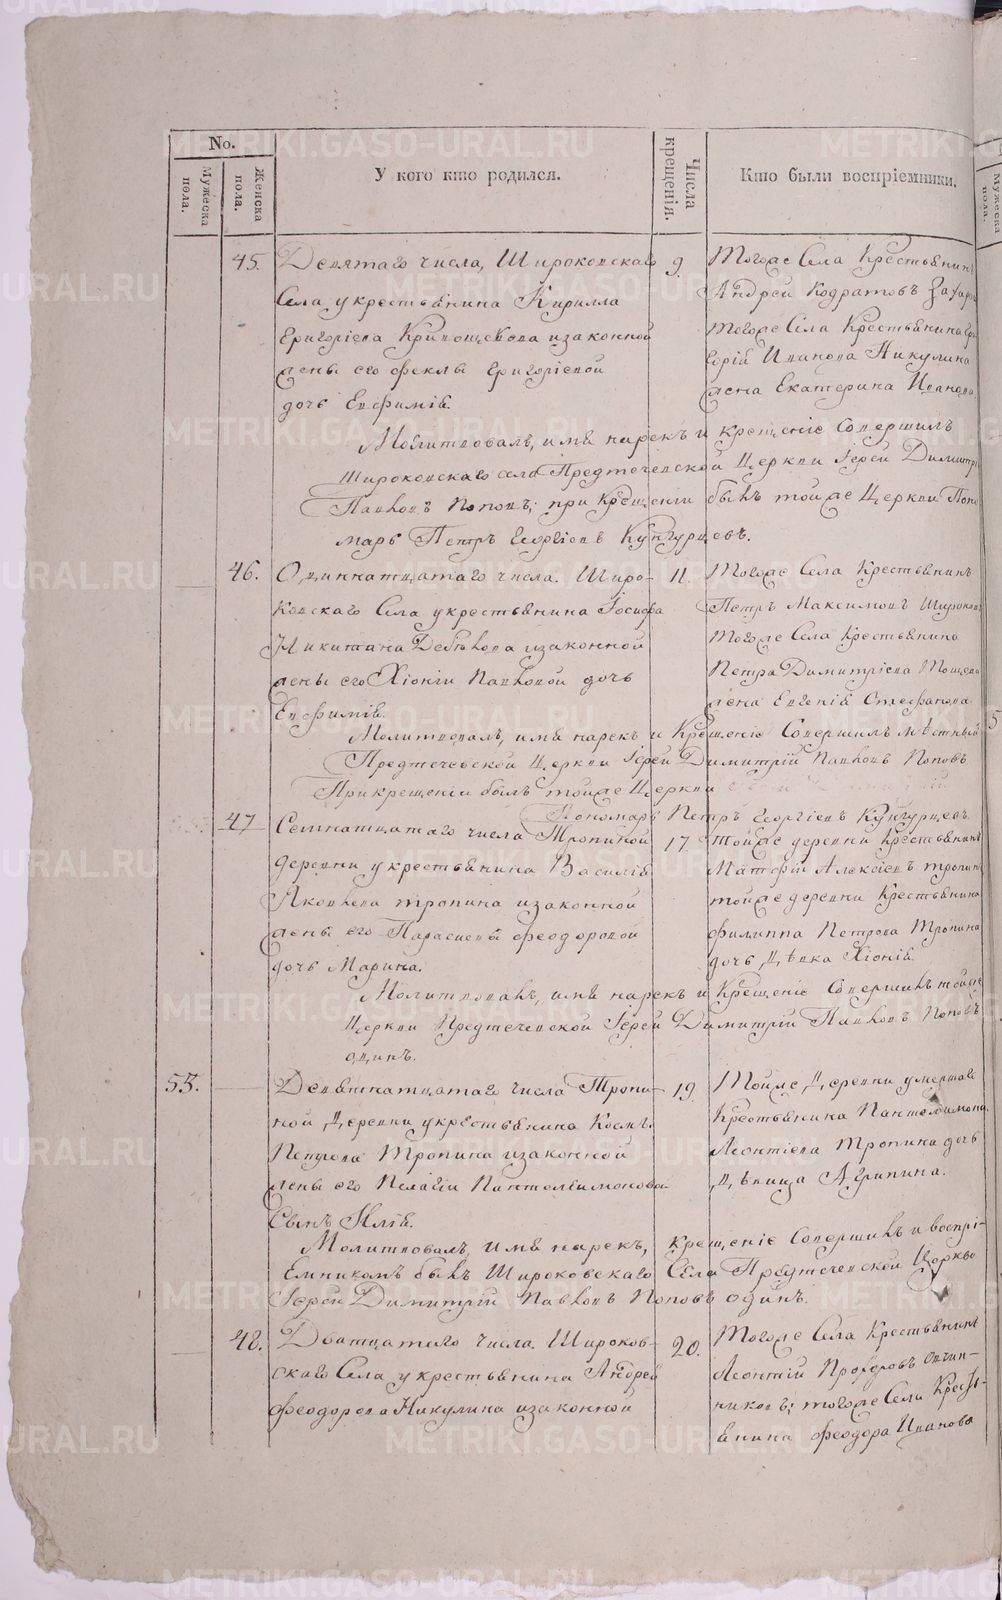 No.
Мужеска пола.
Женска пола.
У кого кто родился.
Числа крещенія.
Кто были воспріемники.
Мужеска пола.
45.
Девятаго числа, Широковскаго
Села, у крестьянина Кирилла
Григоріева Кривощекова изаконной
жены его Феклы Григоріевой
дочь Евфимія.
9.
Тогоже Села Крестьянинъ
Андрей Кодратовъ
тогоже Села Крестьянина
Иванова Никулина
жена Екатерина Иванова
Молитвовалъ, имя нарекъ и крещеніе совершилъ
Широковскаго села Предтечевской Церкви Іерей Димитрі
Павловъ Поповъ; при Крещеніи былъ тойже Церкви Поно
марь Петръ Георгіевъ Кунгурцевъ.
46.
Одиннатцатаго числа. Широ-
ковскаго Села у крестьянина Іосифа
Никитина Дебѣлова изаконной
жены его Хіоніи Павловой дочь
Евфимія.
11.
Тогоже Села Крестьянинъ
Петръ Максимовъ Широков
тогоже Села Крестьянина
Петра Димитріева
жена Евгенія Стефанова
Молитвовалъ, имя нарекъ и Крещеніе Совершилъ мѣстный
Предтечевской Церкви Іерей Димитрій Павловъ Поповъ
При крещеніи былъ тойже Церкви
Пономарь Петръ Георгіевъ Кунгурцевъ.
47
Семнатцатаго числа Тропиной
деревни у крестьянина Василія
Яковлева Тропина изаконной
жены его Парасковьи Феодоровой
дочь Марина.
17
Тойже деревни Крестьянинъ
Матфій Алексіевъ Тропин
тойже деревни Крестьянина
Филиппа Петрова Тропина
дочь Дѣвка Хіонія.
Молитвовалъ, имя нарекъ и Крещеніе Совершилъ тойже
Церкви Предтечевской Іерей Димитрій Павловъ Поповъ
одинъ.
55.
Девятнатцатаго числа Тропи-
ной Деревни у крестьянина Космы
Петрова Тропина изаконной
жены его Пелагіи Пантелеимоновой
Сынъ Илія.
19.
Тойже Деревни умершаго
Крестьянина Пантелеимона
Леонтіева Тропина дочь
Дѣвица Агрипина.
Молитвовалъ, имя нарекъ, крещеніе Совершилъ и воспрі-
емникомъ былъ Широковскаго Села Предтечевской Церкви
Іерей Димитрій Павловъ Поповъ одинъ.
48.
Дватцатаго числа. Широков-
скаго Села у крестьянина Андрея
Феодорова Никулина изаконной
20.
Тогоже Села Крестьянинъ
Леонтій Прохоровъ Овчин-
никовъ; тогоже Села Кресть-
янина Феодора Иванова